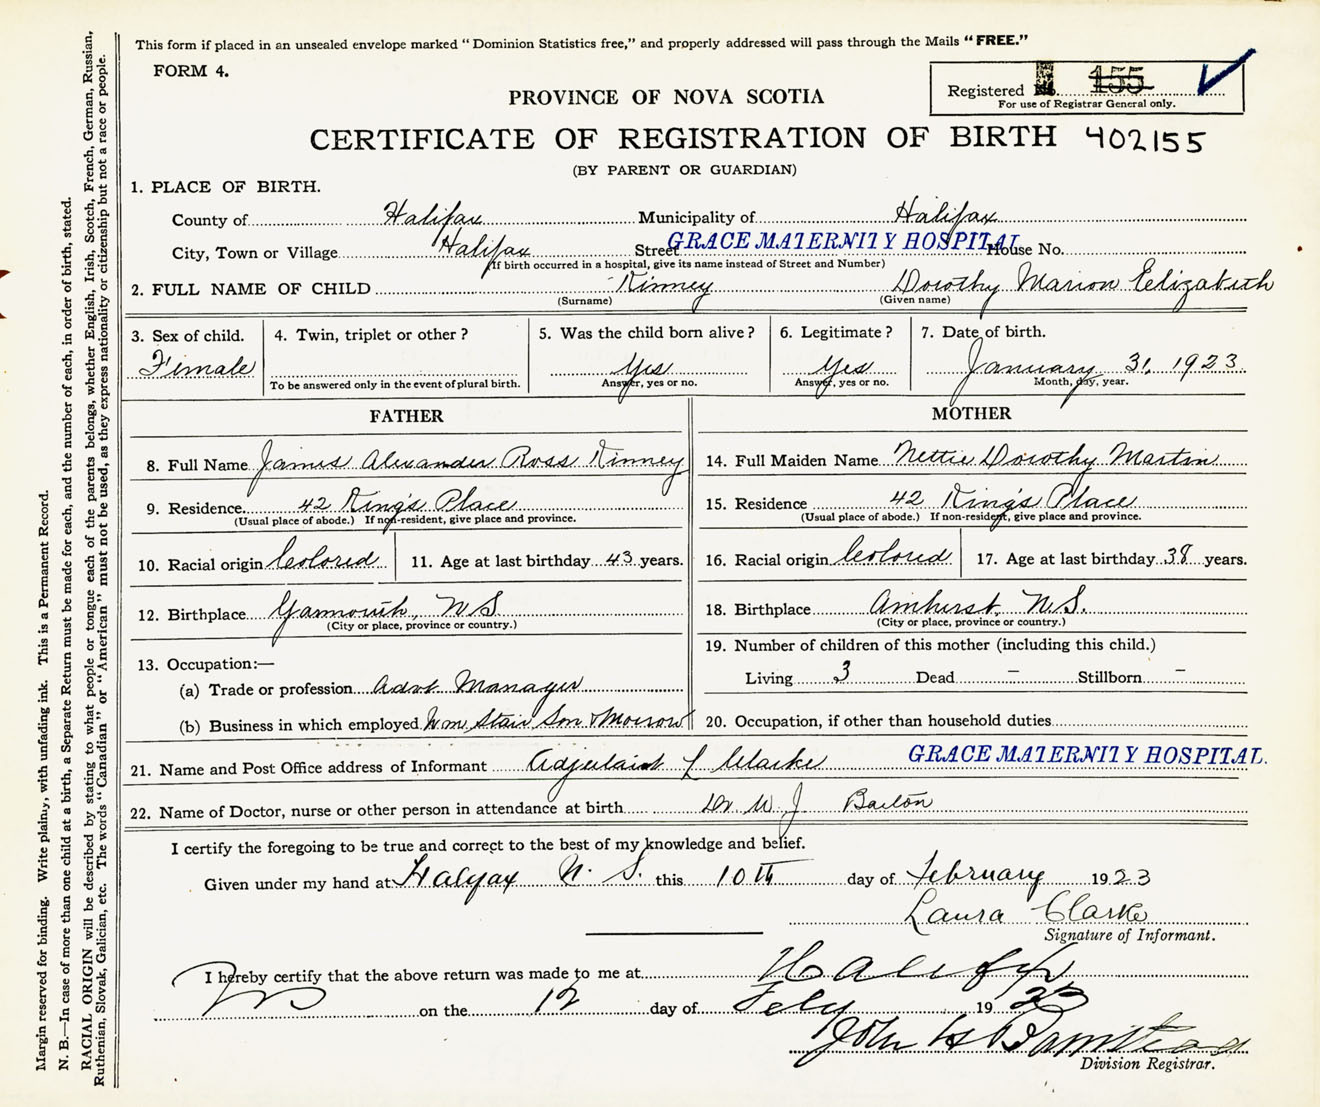 This form if placed in an unsealed envelope marked "Dominion Statistics free," and properly addressed will pass through the Mails "FREE."
FORM 4.
Registered No. 155
For use of Registrar General only.
PROVINCE OF NOVA SCOTIA
CERTIFICATE OF REGISTRATION OF BIRTH 402155
(BY PARENT OR GUARDIAN)
1. PLACE OF BIRTH.
County of Halifax Municipality of Halifax
City, Town or Village Halifax Street GRACE MATERNITY HOSPITAL House No.
(If birth occurred in a hospital, give its name instead of Street and Number)
2. FULL NAME OF CHILD Kinney Dorothy Marion Eelizabeth
(Surname) (Given name)
3. Sex of child. 4. Twin, triplet or other? 5. Was the child born alive? 6. Legitimate? 7. Date of birth.
Female Yes Yes January 31, 1923
To be answered only in the event of plural birth. Answer, yes or no. Answer, yes or no. Month, day, year.
FATHER
8. Full Name James Alexander Ross Kinney
9. Residence 42 King's Place
(Usual place of abode.) If non-resident, give place and province.
10. Racial origin Colored 11. Age at last birthday 43 years.
12. Birthplace Yarmouth, N S
(City or place, province or country.)
13. Occupation:—
(a) Trade or profession Advt Manager
(b) Business in which employed Wm Stair Son & Morrow
MOTHER
14. Full Maiden Name Nettie Dorothy Martin
15. Residence 42 King's Place
(Usual place of abode.) If non-resident, give place and province.
16. Racial origin Colored 17. Age at last birthday 38 years.
18. Birthplace Amherst, N.S.
(City or place, province or country.)
19. Number of children of this mother (including this child.)
Living 3 Dead – Stillborn –
20. Occupation, if other than household duties
21. Name and Post Office address of Informant Adjutant L Clarke GRACE MATERNITY HOSPITAL.
22. Name of Doctor, nurse or other person in attendance at birth Dr W J Barton
I certify the foregoing to be true and correct to the best of my knowledge and belief.
Given under my hand at Halifax N. S. this 10th day of February 1923
Laura Clarke
Signature of Informant.
I hereby certify that the above return was made to me at Halifax
N S on the 12 day of Feby 1923
John H
Division Registrar.
Margin reserved for binding. Write plainly, with unfading ink. This is a Permanent Record.
N. B.—In case of more than one child at a birth, a Separate Return must be made for each, and the number of each, in order of birth, stated.
RACIAL ORIGIN will be described by stating to what people or tongue each of the parents belongs, whether English, Irish, Scotch, French, German, Russian,
Ruthenian, Slovak, Galician, etc. The words "Canadian" or "American" must not be used, as they express nationality or citizenship but not a race or people.